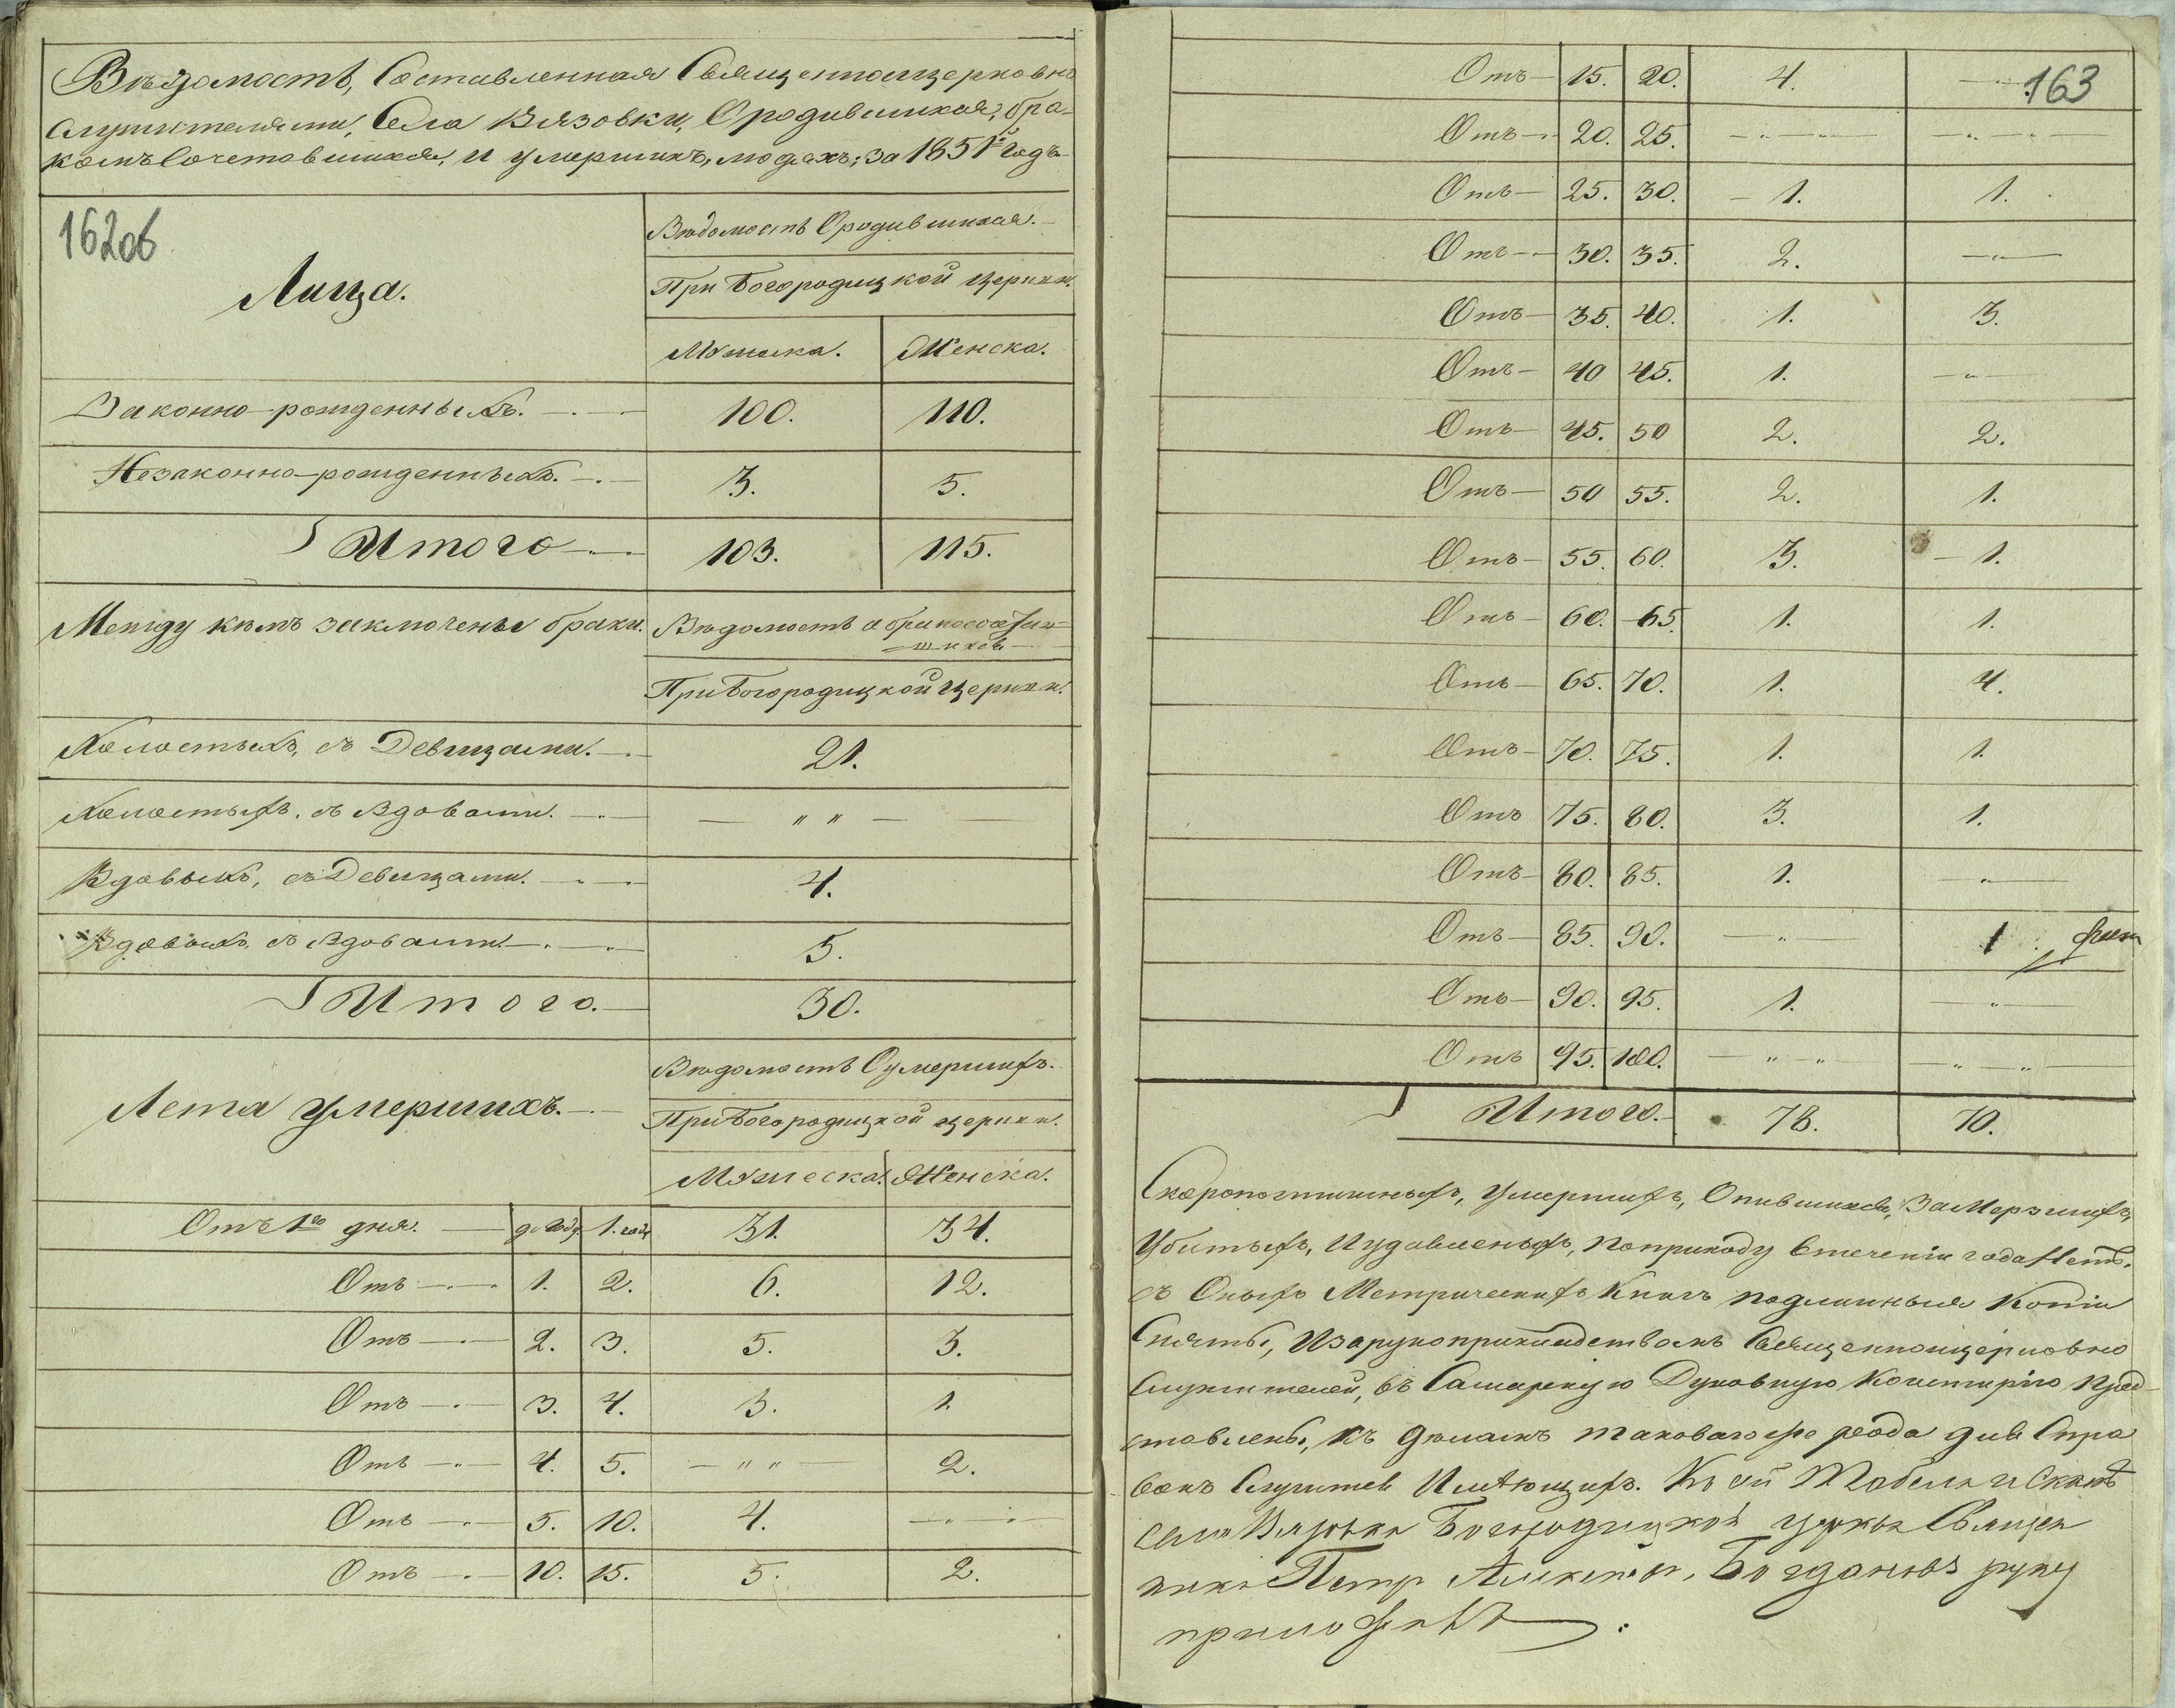 Вѣдомость, Составленная Священноцерковно
служителями, Села Вязовки, О родившихся, бра-
комъ Сочетавшихся, и умершихъ, людяхъ, за 1851й Годъ
162об
Лица.
Вѣдомость О родившихся.
При Богородицкой Церкви.
Мужеска. Женска.
Законно-рожденныхъ. 100. 110.
Незаконно-рожденныхъ. 3. 5.
Итого 103. 115.
Между кѣмъ заключены браки. Вѣдомость о бракосочетав-
шихся
При Богородицкой Церкви.
Холостыхъ, съ Девицами. 21.
Холостыхъ, съ Вдовами. — " " —
Вдовыхъ, съ Девицами. 4.
Вдовыхъ, съ Вдовами. 5.
Итого. 30.
Вѣдомость О умершихъ.
Лета умершихъ. При Богородицкой церкви.
Мужеска. Женска.
Отъ 1го дня. до Году 1. года 31. 34.
Отъ 1. 2. 6. 12.
Отъ 2. 3. 5. 3.
Отъ 3. 4. 3. 1.
Отъ 4. 5. — " " 2.
Отъ 5. 10. 4. — " —
Отъ 10. 15. 5. 2.
163
Отъ 15. 20. 4. —
Отъ 20. 25. — " — — " —
Отъ 25. 30. 1. 1.
Отъ 30. 35. 2. — " —
Отъ 35. 40. 1. 3.
Отъ 40 45. 1. — " —
Отъ 45. 50 2. 2.
Отъ 50 55. 2. 1.
Отъ 55. 60. 3. 1.
Отъ 60. 65. 1. 1.
Отъ 65. 70. 1. 4.
Отъ 70. 75. 1. 1.
Отъ 75. 80. 3. 1.
Отъ 80. 85. 1. — " —
Отъ 85. 90. — " — 1
Отъ 90. 95. 1. — " —
Отъ 95. 100. — " — " — " — "
Итого. 78. 70.
Скоропостижныхъ, умершихъ, Опившихся, Замерзшихъ,
Убитыхъ, И удавленыхъ, по приходу втеченіи года Нетъ.
съ Оныхъ Метрическихъ Книгъ подлинныя Копіи
Сняты, И за рукоприкладствомъ Священноцерковно
служителей, въ Самарскую Духовную Консторію пред-
ставлены, къ деламъ таковаго же рода для Спра
вокъ Служить Имѣющихъ. Къ сей Табели
села Вязовки Богородицкой церкви Священ
никъ Петр Алексеев, Богдановъ руку
приложилъ